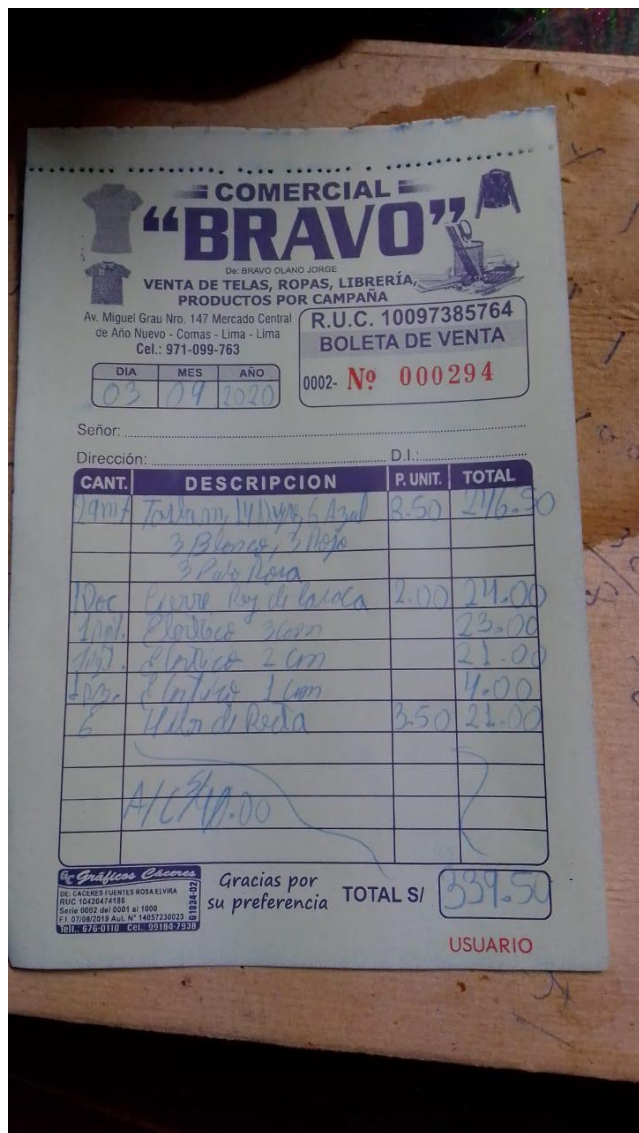 COMERCIAL
"BRAVO"
De: BRAVO OLANO JORGE
VENTA DE TELAS, ROPAS, LIBRERÍA,
PRODUCTOS POR CAMPAÑA
Av. Miguel Grau Nro. 147 Mercado Central
de Año Nuevo - Comas - Lima - Lima
Cel.: 971-099-763
R.U.C. 10097385764
BOLETA DE VENTA
0002- Nº 000294
DIA MES AÑO
03 09 2020
Señor:
Dirección: D.I.:
CANT. DESCRIPCION P. UNIT. TOTAL
29mt 6 Azul 8.50 246.50
3 Blanco, 3 Rojo
3 Palo Rosa
1Doc Cierre Rey de 2.00 24.00
Elastico 3cm 23.00
Elastico 2 cm 21.00
Elastico 1 cm 4.00
6 Hilo de Recta 3.50 21.00
A/C S/40.00
Gráficos Cáceres
DE: CACERES FUENTES ROSA ELVIRA
RUC 10420474186
Serie 0002 del 0001 al 1000
F.I. 07/08/2019 Aut. N° 14057230023
Telf.: 676-0110 Cel.: 99184-7938
01034-02
Gracias por
su preferencia
TOTAL S/ 339.50
USUARIO